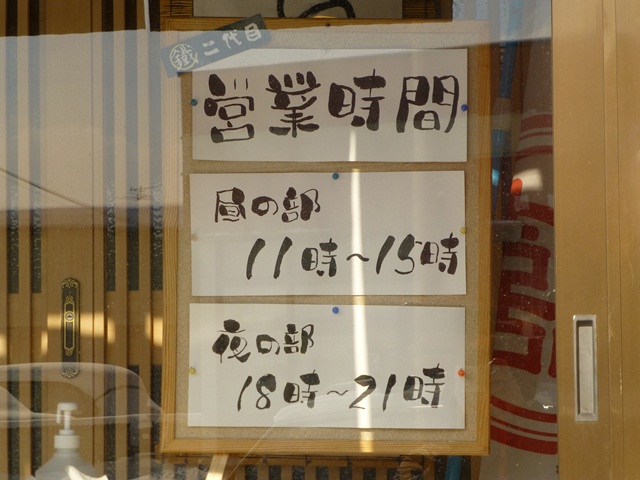 鐵二代目
営業時間
昼の部
11時~15時
夜の部
18時~21時